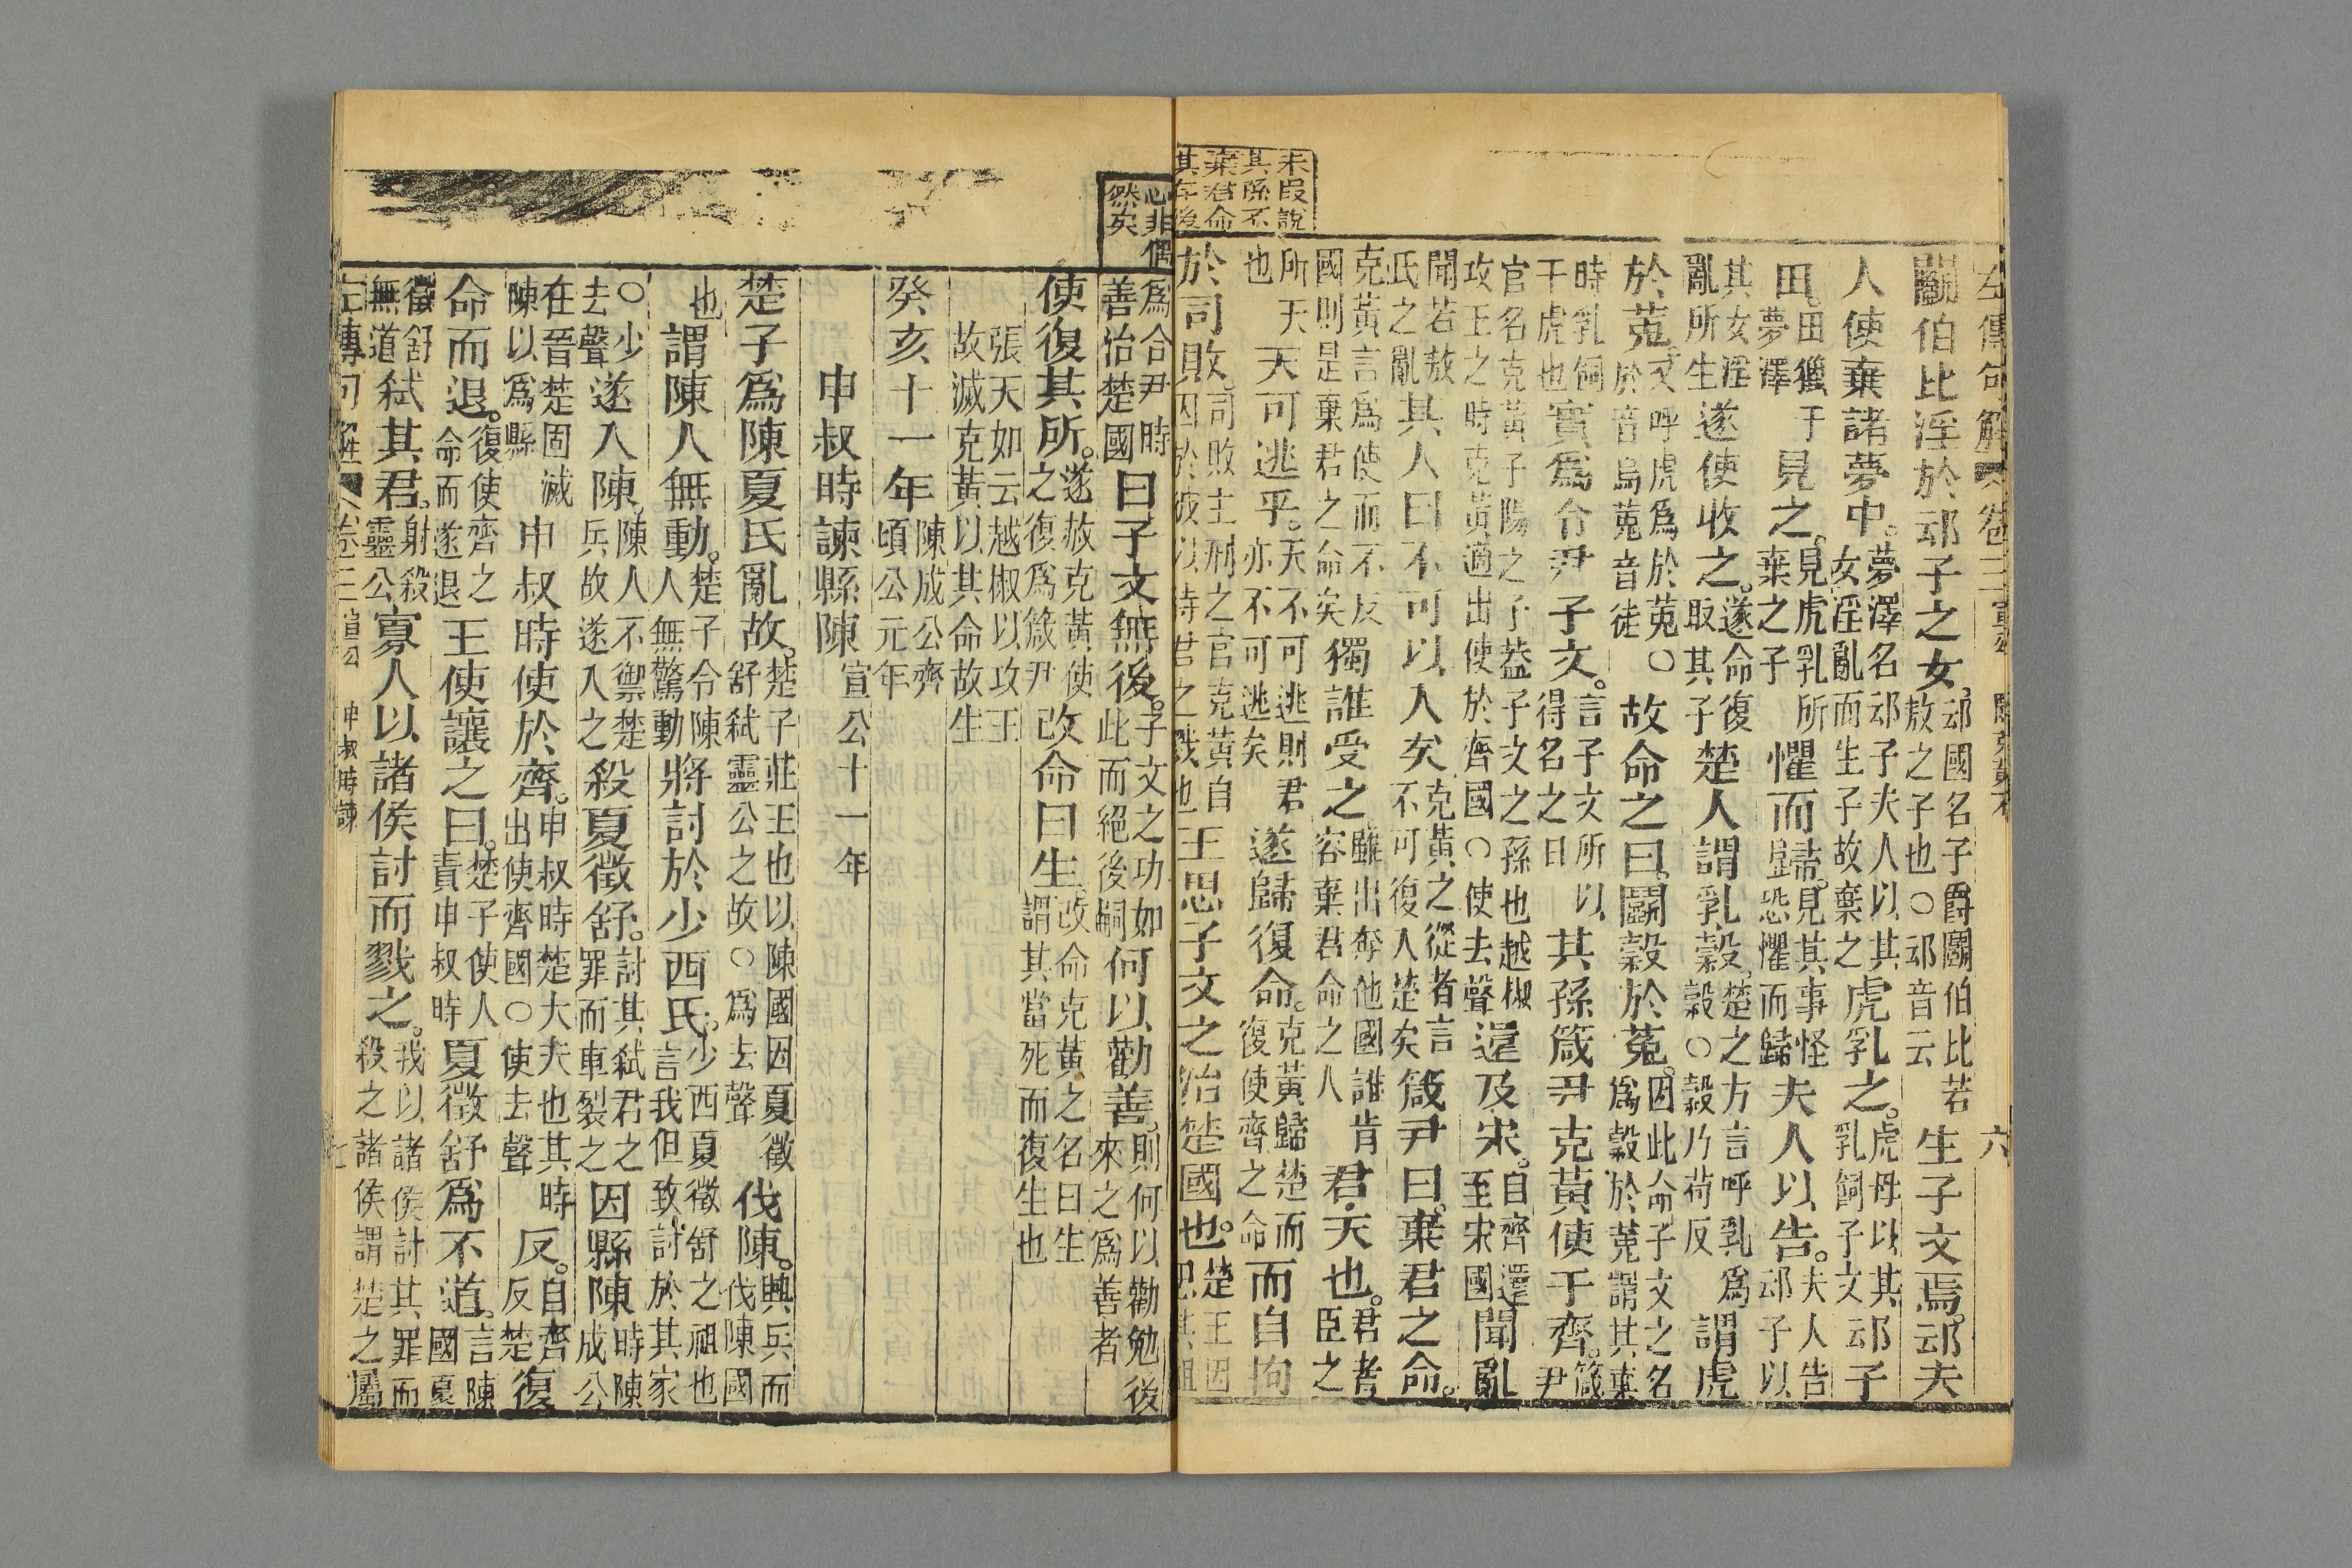 左傳句解 卷三 宣公 鬭克黃不 六
鬭伯比淫於䢵子之女。䢵國名子爵鬭伯比若敖之子也○䢵音云生子文焉。䢵夫
人使棄諸夢中。夢澤名䢵子夫人以其女淫亂而生子故棄之虎乳之。虎母以其乳飼子文䢵子
田。田獵于夢澤見之。見虎乳所棄之子懼而歸。見其事怪恐懼而歸夫人以告。夫人告䢵子以
其女淫亂所生遂使收之。遂命復取其子楚人謂乳穀。楚之方言呼乳爲穀○穀乃苟反謂虎
於菟。又呼虎爲於菟○於音烏菟音徒故命之曰鬭穀於菟。因此命子文之名爲穀於菟謂其棄
時乳飼于虎也實爲令尹子文。言子文所以得名之曰其孫箴尹克黃使于齊。箴尹
官名克黃子陽之子葢子文之孫也越椒攻王之時克黃適出使於齊國○使去聲還及宋。自齊還至宋國聞亂
聞若敖氏之亂其人曰不可以入矣克黃之從者言不可復入楚矣箴尹曰。棄君之命。
克黃言爲使而不反國則是棄君之命矣獨誰受之雖出奔他國誰肯容棄君命之人君天也。君者臣之
所天也天可逃乎。天不可逃則君亦不可逃矣遂歸復命。克黃歸楚而復使齊之命而自拘
未段說其孫不棄君命其後
於司敗。司敗主刑之官克黃自囚於彼以待君之戮也王思子文之治楚國也。楚王因思其祖
心非偶然矣
爲令尹時善治楚國曰子文無後。子文之功如此而絕後嗣何以勸善。則何以勸勉後來之爲善者
使復其所。遂赦克黃使之復爲箴尹改命曰生。改命克黃之名曰生謂其當死而復生也
張天如云越椒以攻王故滅克黃以其命故生
癸亥十一年陳成公齊頃公元年
申叔時諫縣陳宣公十一年
楚子爲陳夏氏亂故。楚子莊王也以陳國因夏徵舒弒靈公之故○爲去聲伐陳。興兵而伐陳國
也謂陳人無動。楚子令陳人無驚動將討於少西氏。少西夏徵舒之祖也言我但致討於其家
○少去聲遂入陳。陳人不禦楚兵故遂入之殺夏徵舒。討其弒君之罪而車裂之因縣陳時陳成公
在晉楚固滅陳以爲縣申叔時使於齊。申叔時楚大夫也其時出使齊國○使去聲反。自齊反楚復
命而退。復使齊之命而遂退王使讓之曰。楚子使人責申叔時夏徵舒爲不道。言陳國夏
徵舒無道弒其君。射殺靈公寡人以諸侯討而戮之。我以諸侯討其罪而殺之諸侯謂楚之屬
左傳句解 卷三 宣公 申叔時諫 七